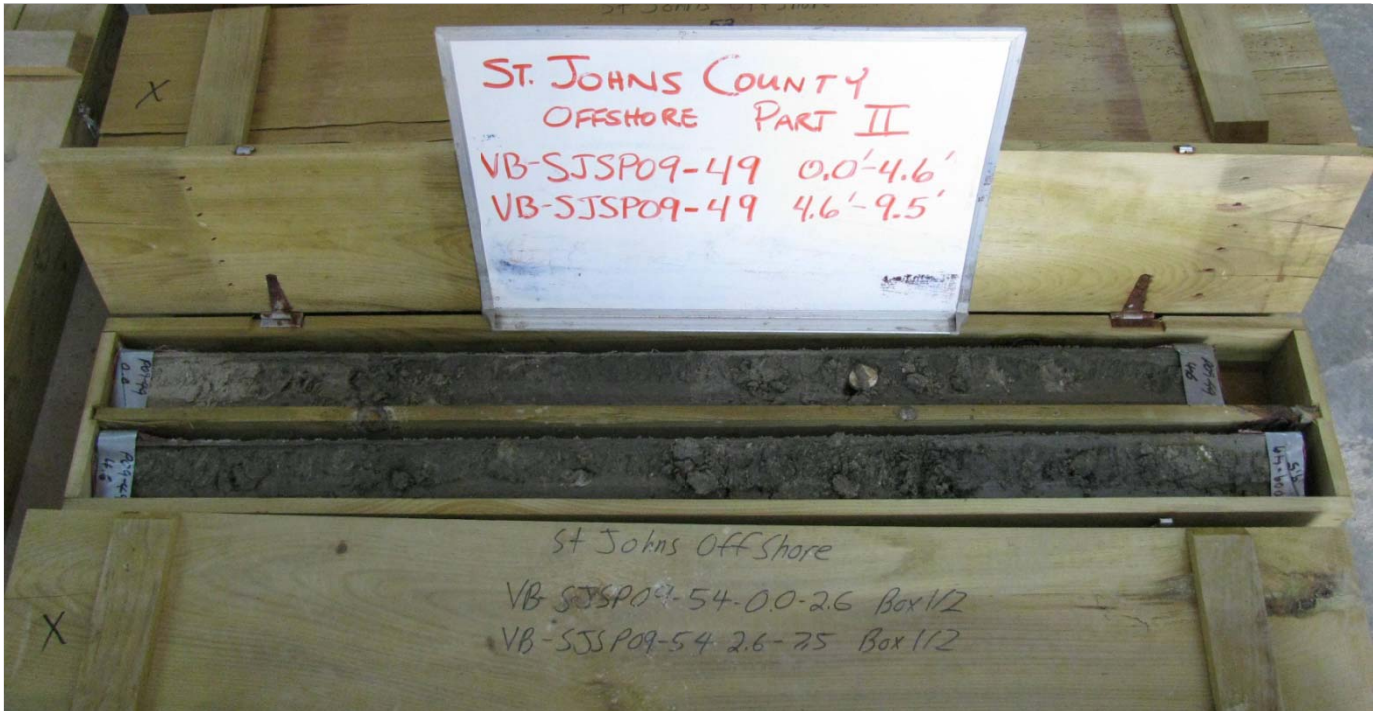 St Johns Offshore
53
ST. JOHNS COUNTY
OFFSHORE PART II
VB-SJSP09-49 0.0'-4.6'
VB-SJSP09-49 4.6'-9.5'
0.0
4.6
4.6
St Johns Offshore
VB-SJSP09-54-0.0-2.6 Box 1/2
VB-SJSP09-54-2.6-7.5 Box 1/2
X
X